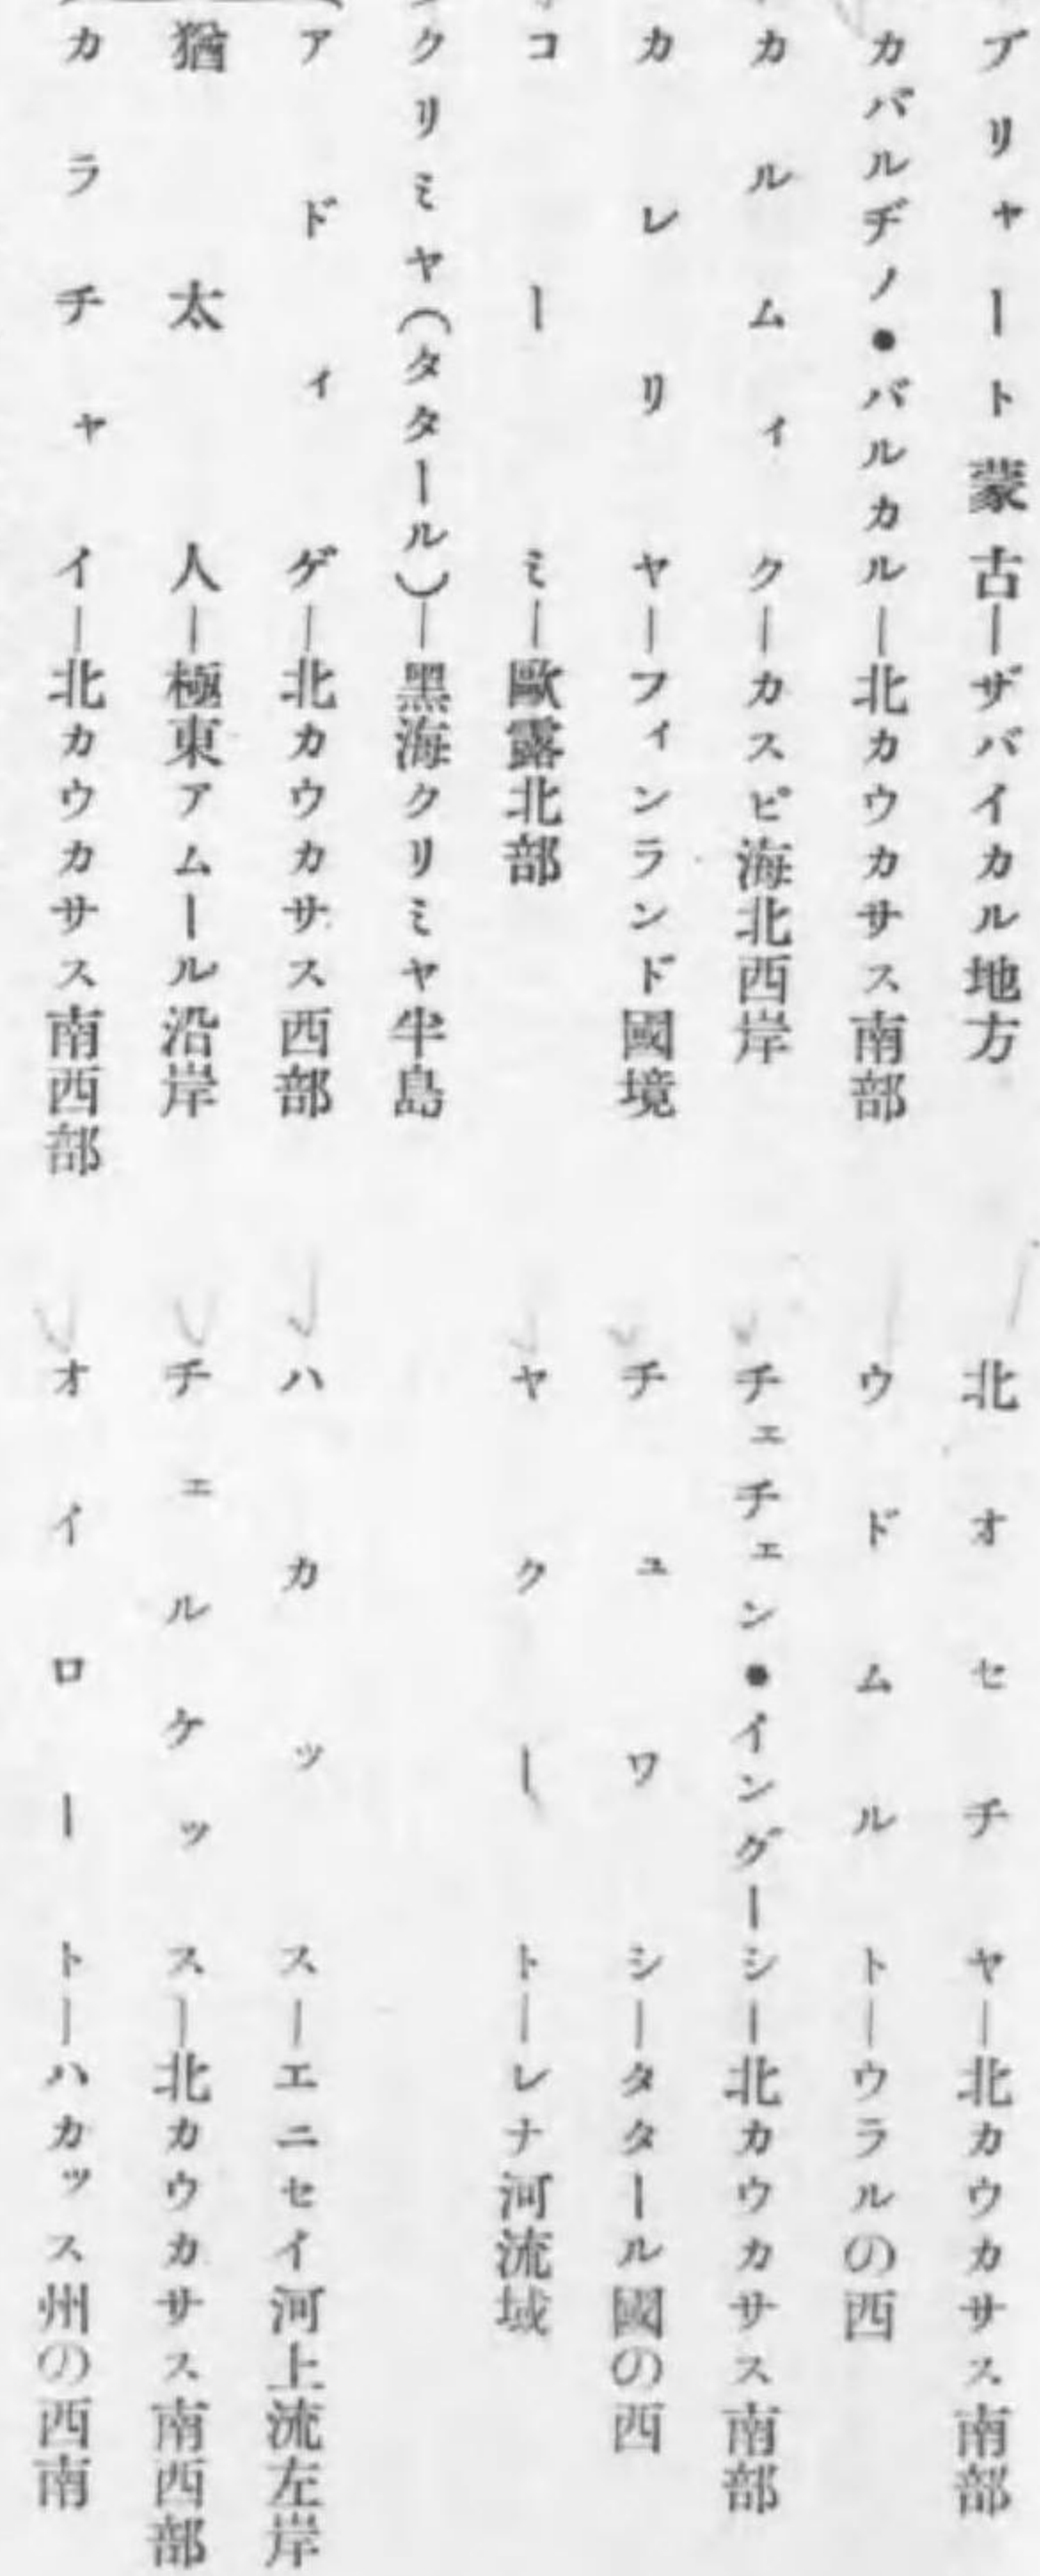 ブリヤート蒙古―ザバイカル地方
カバルヂノ・バルカル―北カウカサス南部
カルムィク―カスピ海北西岸
カレリヤ―フィンランド國境
コーミ―歐露北部
クリミヤ(タタール)―黑海クリミヤ半島
アドィゲ―北カウカサス西部
猶太人―極東アムール沿岸
カラチャイ―北カウカサス南西部
北オセチヤ―北カウカサス南部
ウドムルト―ウラルの西
チェチェン・イングーシ―北カウカサス南部
チュワシ―タタール國の西
ヤクート―レナ河流域
ハカッス―エニセイ河上流左岸
チェルケッス―北カウカサス南西部
オイロート―ハカッス州の西南